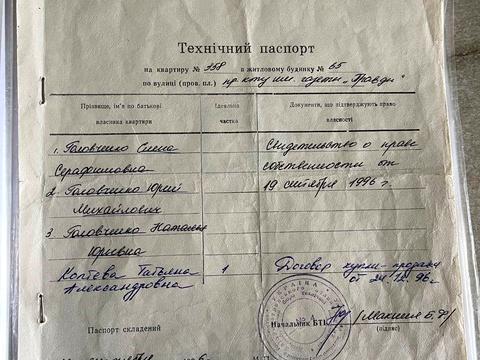 Технічний паспорт
на квартиру № 358 в житловому будинку № 65
по вулиці (пров. пл.) пр-кту им. газеты „Правди"
Прізвище, ім'я по батькові власника квартири
Ідеальна частка
Документи, що підтверджують право власності
1. Головченко Елена Серафимовна
Свидетельство о праве собственности от 19 сентября 1996 г
2. Головченко Юрий Михайлович
3. Головченко Наталья Юрьевна
Коптева Татьяна Александровна
1
Договор купли-продажи от 24.12.96г.
УКРАЇНА
№ 1
Паспорт складений
Начальник БТІ
(підпис)